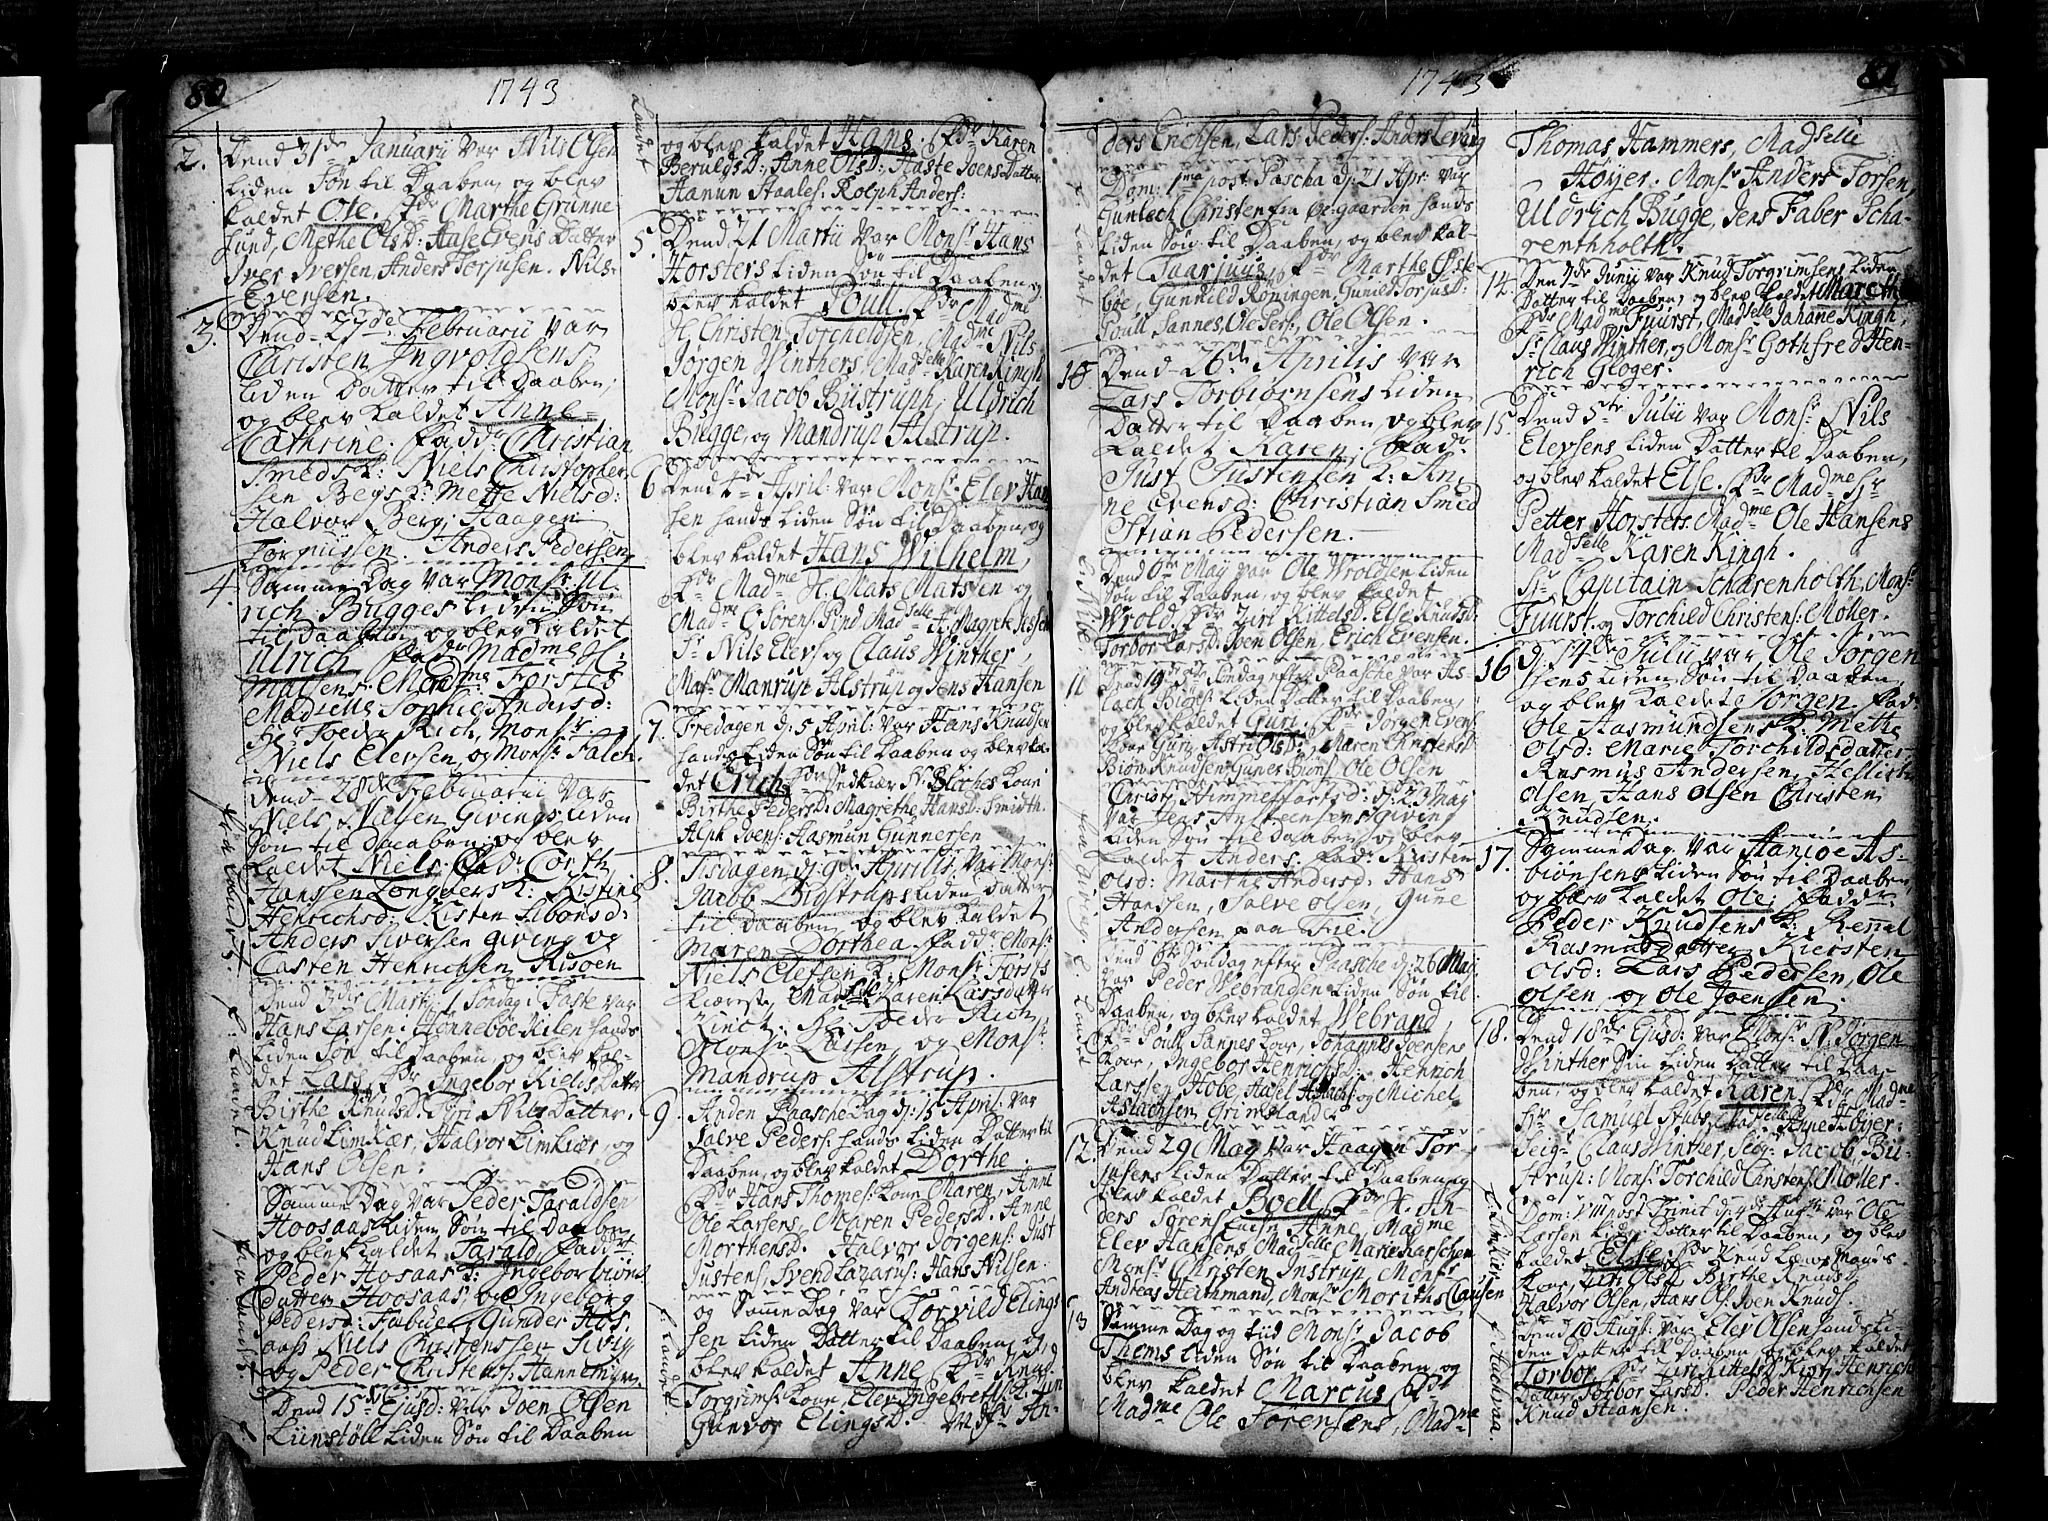 80
1743
2. Dend 31de Januarii var Nils Olsen
liden Søn til Daaben, og blev
kaldet Ole. Fdr Marthe Grünne-
sund, Methe OlsD: Aase Evens Datter
Iver Iversen, Anders Torjusen. Nils
Evensen.
3. Dend 27de Februarii var
Christen Ingvoldsens
liden Datter til Daaben,
og blev kaldet Anne
Cathrine. Faddr Christian
Smeds K: Niels Christopher
sen Begs K: Mette Nielsd:
Halvor Berg, Haagen
Torgiüssen. Anders Pedersen
4. Samme Dag var Monsr Ul
rich Bugges liden Søn
til Daaben og blev kaldet
Ulrich Fadr Madme H:
Matsens Madme Forsters
Madselle Sophie Andersd:
Hr Toeder Rich, Monsr
Niels Elevsen, og Monsr Falch.
Dend 28de Februarii var
Niels Nielsen Givings liden
Søn til daaben og blev
kaldet Niels, Fad: Corth
Hanssen Longders K: Kistine
Henrichsd: Kisten Sibønsd:
Anders Siversen Giving og
Casten Henrichsen Risøen
Dend 3die Martij 1 Søndag i Faste var
Hans Larsen Hønneböe Kilen hands
liden Søn til Daaben, og blev kal-
det Lars, Fdr Ingebor Niels Datter
Birthe KnudsD: Giri Nils Datter.
Knud Limkiær, Halvor Limkiær, og
Hans Olsen.
Samme Dag var Peder Taraldsen
Hoosaas liden Søn til Daaben
og blef kaldet Tarald, Faddr:
Peder Hosaas K: Ingebor biöns
datter Hoosaas, og Ingeborg
Pedersd: Gunder Hos
aas Niels Christenssen
og Peder Christens: Hannemyren
Dend 15de Ejusd: var Joen Olsen
Lünstöll liden Søn til Daaben
og blev kaldet Hans. Fdr Karen
BeruldsD: Anne OlsD: Aaste Joens Datter
Hanun Staales: Rolph Anders:
5. Dend 21 Martii var Monsr Hans
Horsters liden Søn til Daaben, og
blev kaldet Poull. Fdr Madme
H. Christen Torchildsen, Madme Nils
Jørgen Winthers, Madselle Karen Kingh
Monsr Jacob Büstruph, Uldrich
Bugge, og Mandrup Alstrup.
6 Dend 4de April: var Monsr Elev Han
sen hands liden Søn til Daaben, og
blev kaldet Hans Wilhelm,
Fdr Madme H. Mats Matssen og
Madme C. Sørens: Madselle A: Magrete
Sr Nils Elevs og Claus Winther,
Monsr Manrup Alstrüp og Jens Hansen
7. Fredagen d: 5 April: var Hans Knudsen
hands liden Søn til Daaben og blev kal
det Erich, Fdr
Birthe PedersD: Magrethe HansD: Smidth.
Alph Joens: Aasmun Gunnersen
8. Tisdagen d: 9de Aprilis var Monsr
Jacob Bystrups liden datter
til daaben, og blev kaldet
Maren Dorthea. Fadr Monsr
Niels Elefsen K: Monsr Forsts
kiæreste, Madselle Karen Larsdatter
Kinck, Hr Toeder Rich,
Monsr Larsen, og Monsr
Mandrup Alstrup.
9. Anden Paasche Dag d: 15 April: var
Salve Peders: hands liden Datter til
Daaben, og blev kaldet Dorthe.
Fdr Hans Thomes: kone Maren, Anne
Ole Larsens, Maren PedersD. Anne
MorthensD. Halvor Jørgens: Just
Justens, Svend Lazarus: Hans Nilsen.
og Samme Dag var Torvild Elings
sen liden Datter til Daaben, og
blev kaldet Anne Fdr Knud
Torgrims: kone, Elev Ingebrets: K:
Gundor ElingsD. Msr An-
81
1743
ders Erichsen, Lars Peders: Anders Leving
Dom: 1ma post Pascha d: 21 Apr: var
Gunlech Christen fra Øegaarden hands
liden Søn til Daaben, og blev kal-
det Taarjuus, Fdr Marthe Øste-
böe, Gunnild Røningen, Gunild TorjusD:
Poull Sannes, Ole Pers:, Ole Olsen.
10 Dend 26de Aprilis var
Lars Torbiørnsens liden
Datter til Daaben, og blev
kaldet Karen, Fad:
Just Justensen K: An
ne Evensd: Christian Smed
Stian Pedersen.
Dend 6te Maÿ var Ole Wroldsen liden
Søn til Daaben, og blev kaldet
Wrold. Fdr Ziri KittelsD. Else KnudsD:
Torbor LarsD: Joen Olsen, Erich Evensen.
11 Dend 19 5te Søndag efter Paasche var As
lach Biöns: liden Datter til Daaben,
og blev kaldet Guri, Fdr Jørgen Evens:
kone Guri, Astri OlsD:, Maren ChristensD:
Biön Knudsen Guner Biöns: Ole Olsen
Christj Himmelfartsd: d: 23 Maÿ
var Jens Ansteensens Giving
liden Søn til daaben, og blev
kaldet Anders. Fad: Kristen
Olsd: Marthe Andersd: Hans
Hansen, Salve Olsen, Gune
Andersen paa
Dend 6te Søndag efter Paasche d: 26 Maÿ
var Peder Webrandsen liden Søn til
Daaben, og blev kaldet Webrand,
Fdr Poull Sannes kone, Johannes Joensens
kone, Ingebor HenrichsD: Henrich
Larssen, Hobe, Aasel Aslachs: og Michel
Aslachsen Grimsland.
12. Dend 29 Maÿ var Haagen Tor-
jusens liden Datter til Daaben, og
blev kaldet Boell, Fdr H. An-
ders Sørens: Anne, Madme
Elev Hansens, Madselle Marie Karschen
Monsr Christen Instrup, Monsr
Andreas Heithmand, Monsr Moriths Clausen
13 Samme Dag og tiid Monsr Jacob
Thems liden Søn til Daaben, og
blev kaldet Marcus Fdr
Madme Ole Sørensens, Madme
Thomas Hammers, Madselle
Høyer. Monsr Anders Torsen,
Uldrich Bugge, Jens Faber Scha-
renthholth.
14. Den 7de Junii var Knud Torgrimsens liden
Datter til Daaben, og blev kaldet
Fdr Madme Fuurst, Madselle Johane Kingh,
Sr Claus Winther, og Monsr Gothfred Hen-
rich Gloger.
15. Dend 5te Julii var Monsr Nils
Elevsens liden Datter til Daaben,
og blev kaldet Else. Fdr Madme Hr
Petter Horsters. Madme Ole Hansens
Madselle Karen Kingh.
Hr Capitain Scharenholth, Monsr
Fuurst og Torchild Christens: Møller.
16 d. 14de Julii var Ole Jørgen
sens liden Søn til Daaben,
og blev kaldet Jørgen. Fad:
Ole Aasmundsens K: Mette
Olsd: Marie Torchildsdatter
Rasmus Andersen, Keslith
Olsen, Hans Olsen Christen
Knudsen.
17. Samme Dag var Hanioe As-
biønsens liden Søn til Daaben
og blev kaldet Ole, Faddr:
Peder Knudsens K: Rennel
Rasmusdatter Kiersten
Olsd: Lars Pedersen, Ole
Olsen, og Ole Joensen.
18. Dend 18de Ejusd: var Monsr N. Jørgen
Winther Sin liden Datter til Daa-
ben, og blev kaldet Karen, Fdr Madme
Hr Samuel Stubs, Madselle Anne Höyer
Seigr Claus Winther, Seigr Jacob Bü-
strup: Monsr Torchild Christens: Møller.
Dom: VIII post Trinit d: 4de Aug: var Ole
Larsen liden Datter til Daaben, og blev
kaldet Else, Fdr Knud Lænsmands
kone, Giri OlsD. Birthe KnudsD.
Halvor Olsen, Hans Ols: Joen Knuds.
Dend 10 Augs: var Elev Olsen hands li
den Datter til Daaben, og blev kaldet
Torbor, Fdr Ziri KittelsD. Kirst. Henrich
Datter, Torbor LarsD. Peder Henrichsen
Knud Stiansen.